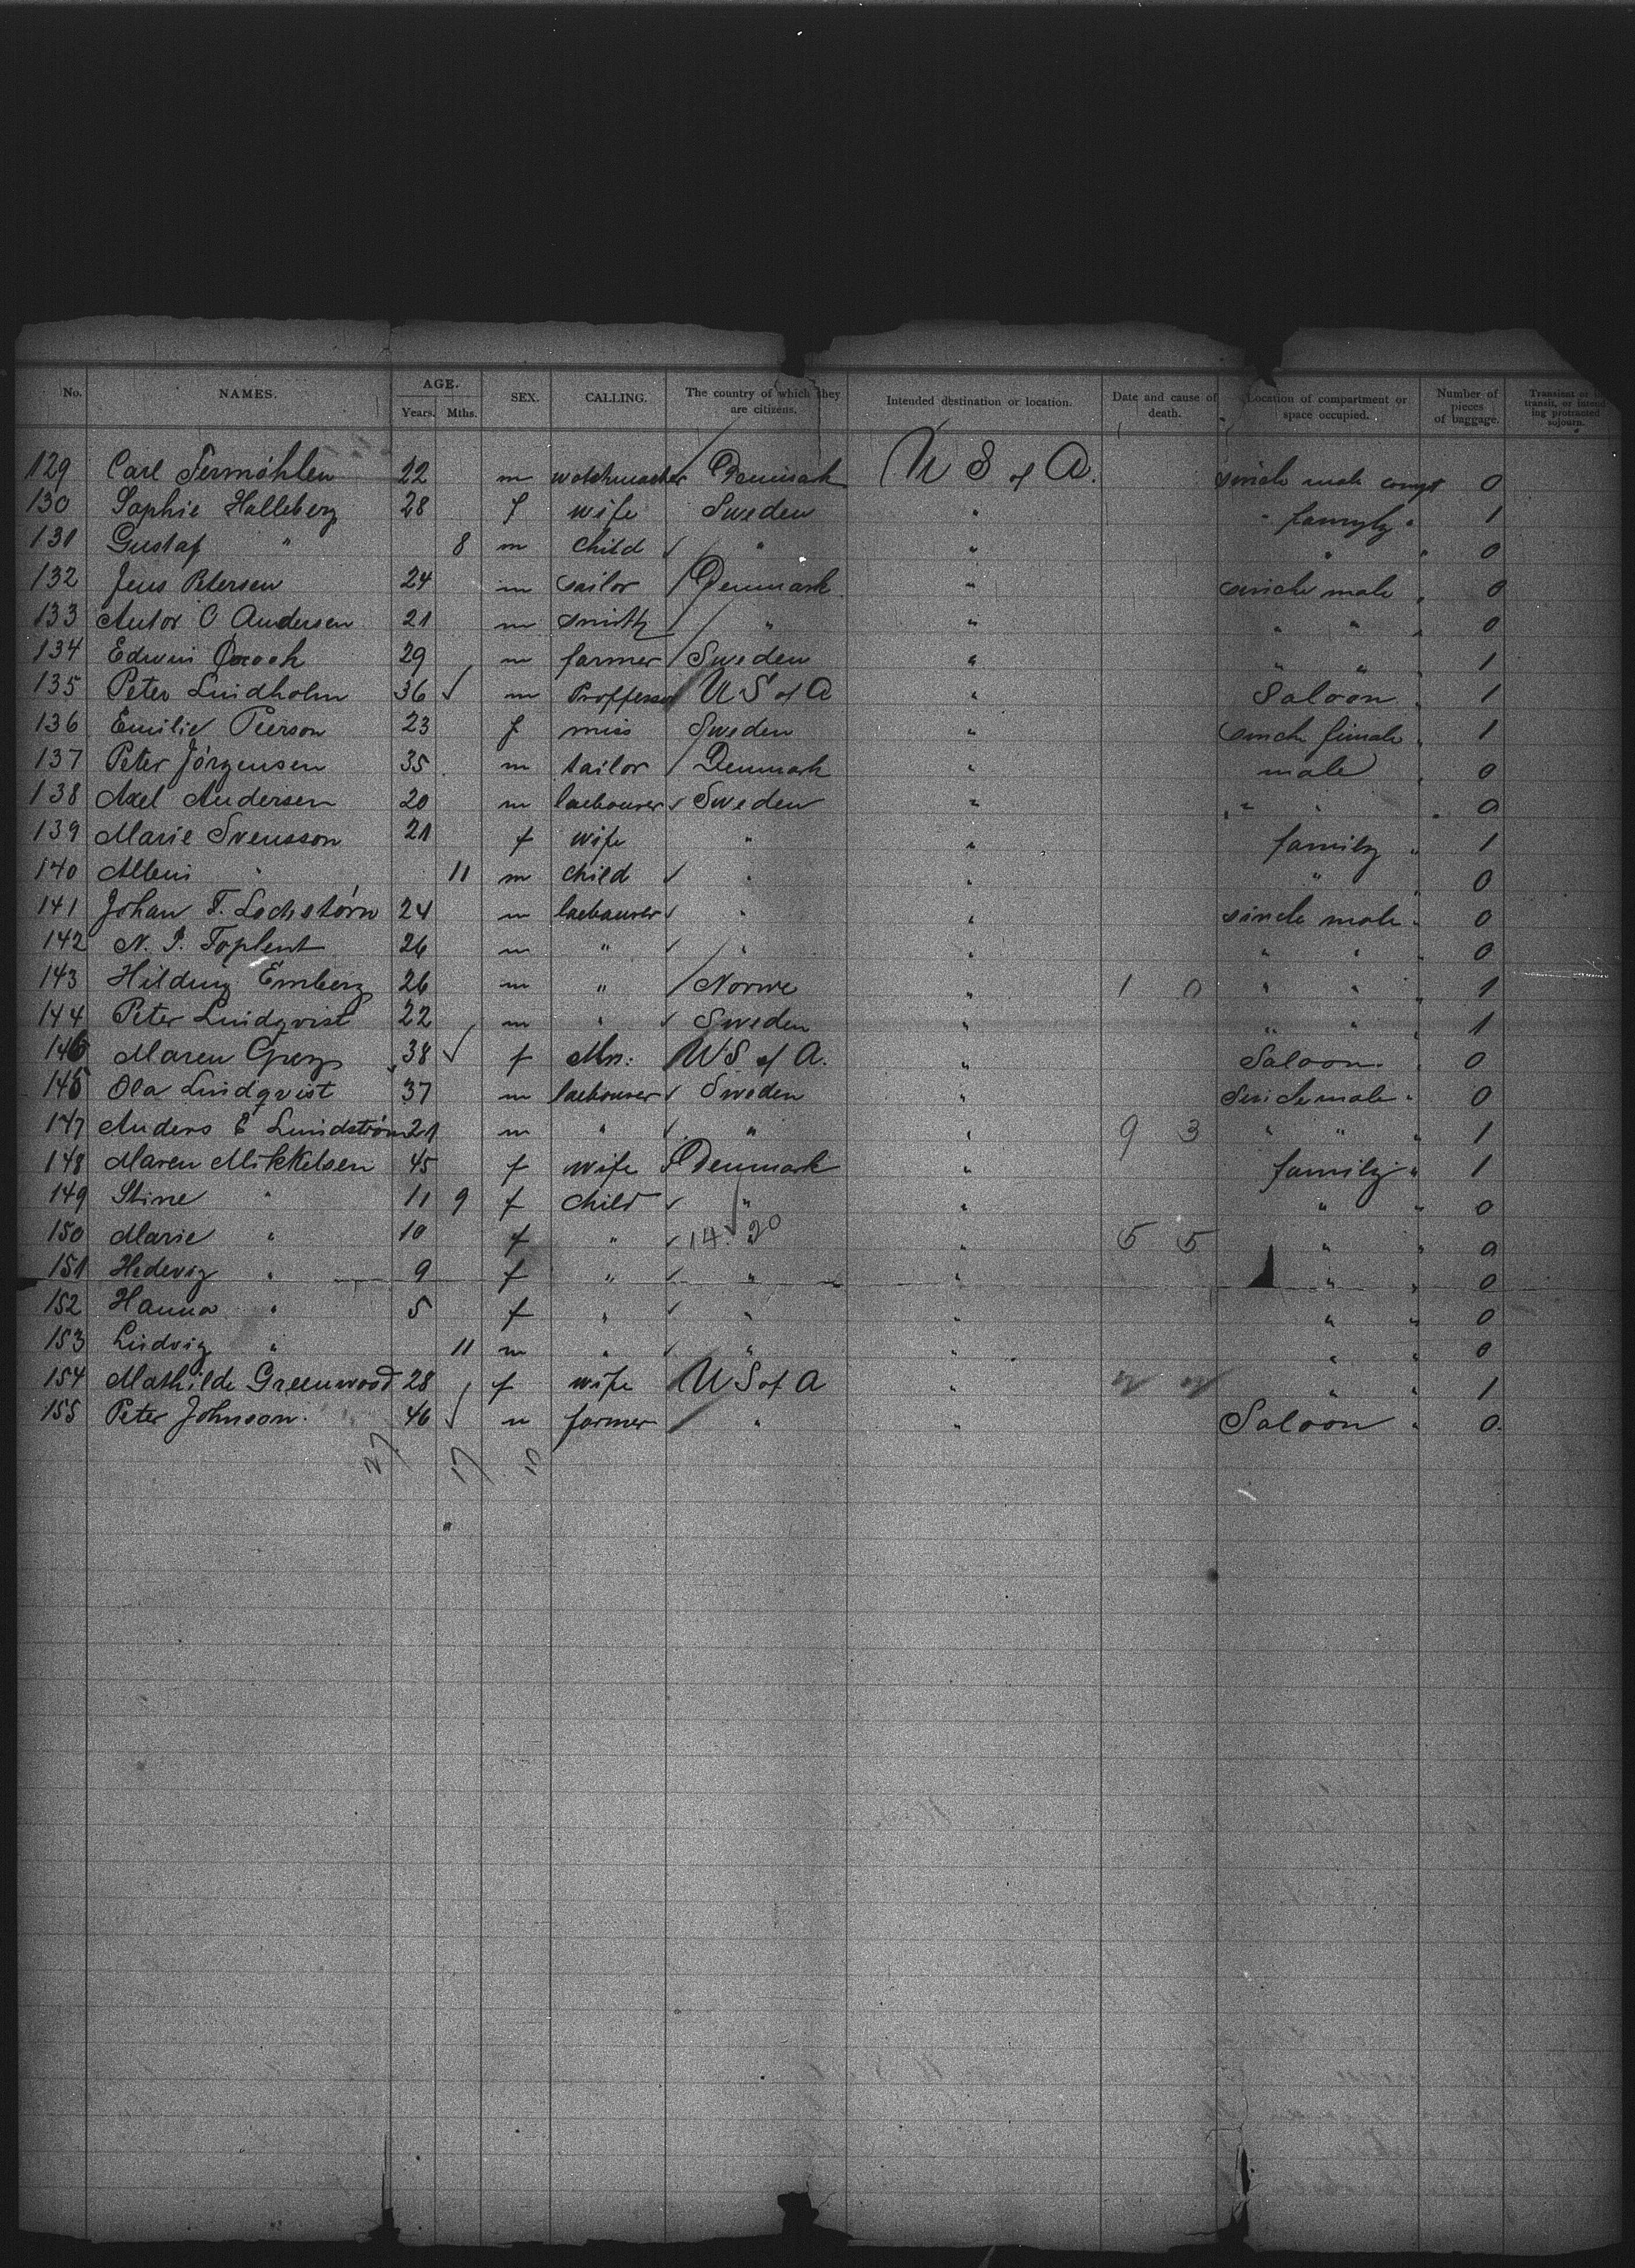 No. NAMES. AGE. Years. Mths. SEX. CALLING. The country of which they are citizens. Intended destination or location. Date and cause of death. Location of compartment or space occupied. Number of pieces of baggage. Transient or in transit, or intending protracted sojourn.
129 Carl Fermöhlen 22 m watchmacher Denmark U S of A. sincle male compt 0
130 Sophie Halleberg 28 f wife Sweden " " famyly " 1
131 Gustaf " 8 m child " " " " 0
132 Jens Petersen 24 m sailor Denmark " sincle male " 0
133 Anton C Andersen 21 m smith " " " " " 0
134 Edwin 29 m farmer Sweden " " " " 1
135 Peter Lindholm 36 m Proffessor U S of A " Saloon " 1
136 Emilie Pierson 23 f miss Sweden " sincle female " 1
137 Peter Jörgensen 35 m tailor Denmark " male " 0
138 Axel Andersen 20 m laebourer Sweden " " " " 0
139 Marie Svensson 21 f wife " " family " 1
140 Albin " 11 m child " " " " 0
141 Johan F. Lochstörn 24 m laebourer " " sincle male " 0
142 N. P. Toplent 26 m " " " " " " 0
143 Hilding Emberg 26 m " Norwe " 1 0 " " " 1
144 Peter Lindqvist 22 m " Sweden " " " " 1
146 Maren Grey 38 f Mrs. U S of A. " Saloon " 0
145 Ola Lindqvist 37 m laebourer Sweden " sincle male " 0
147 Anders E Lundström 21 m " " " 9 3 " " " 1
148 Maren Mikkelsen 45 f wife Denmark " family " 1
149 Stine " 11 9 f child " " " " 0
150 Marie " 10 f " 14.20 " " 5 5 " " 0
151 Hedevig " 9 f " " " " " 0
152 Hanna " 5 f " " " " " 0
153 Ludvig " 11 m " " " " " 0
154 Mathilde Greenwood 28 f wife U S of A " " " 1
155 Peter Johnson. 46 m farmer " " Saloon " 0.
27 17 10